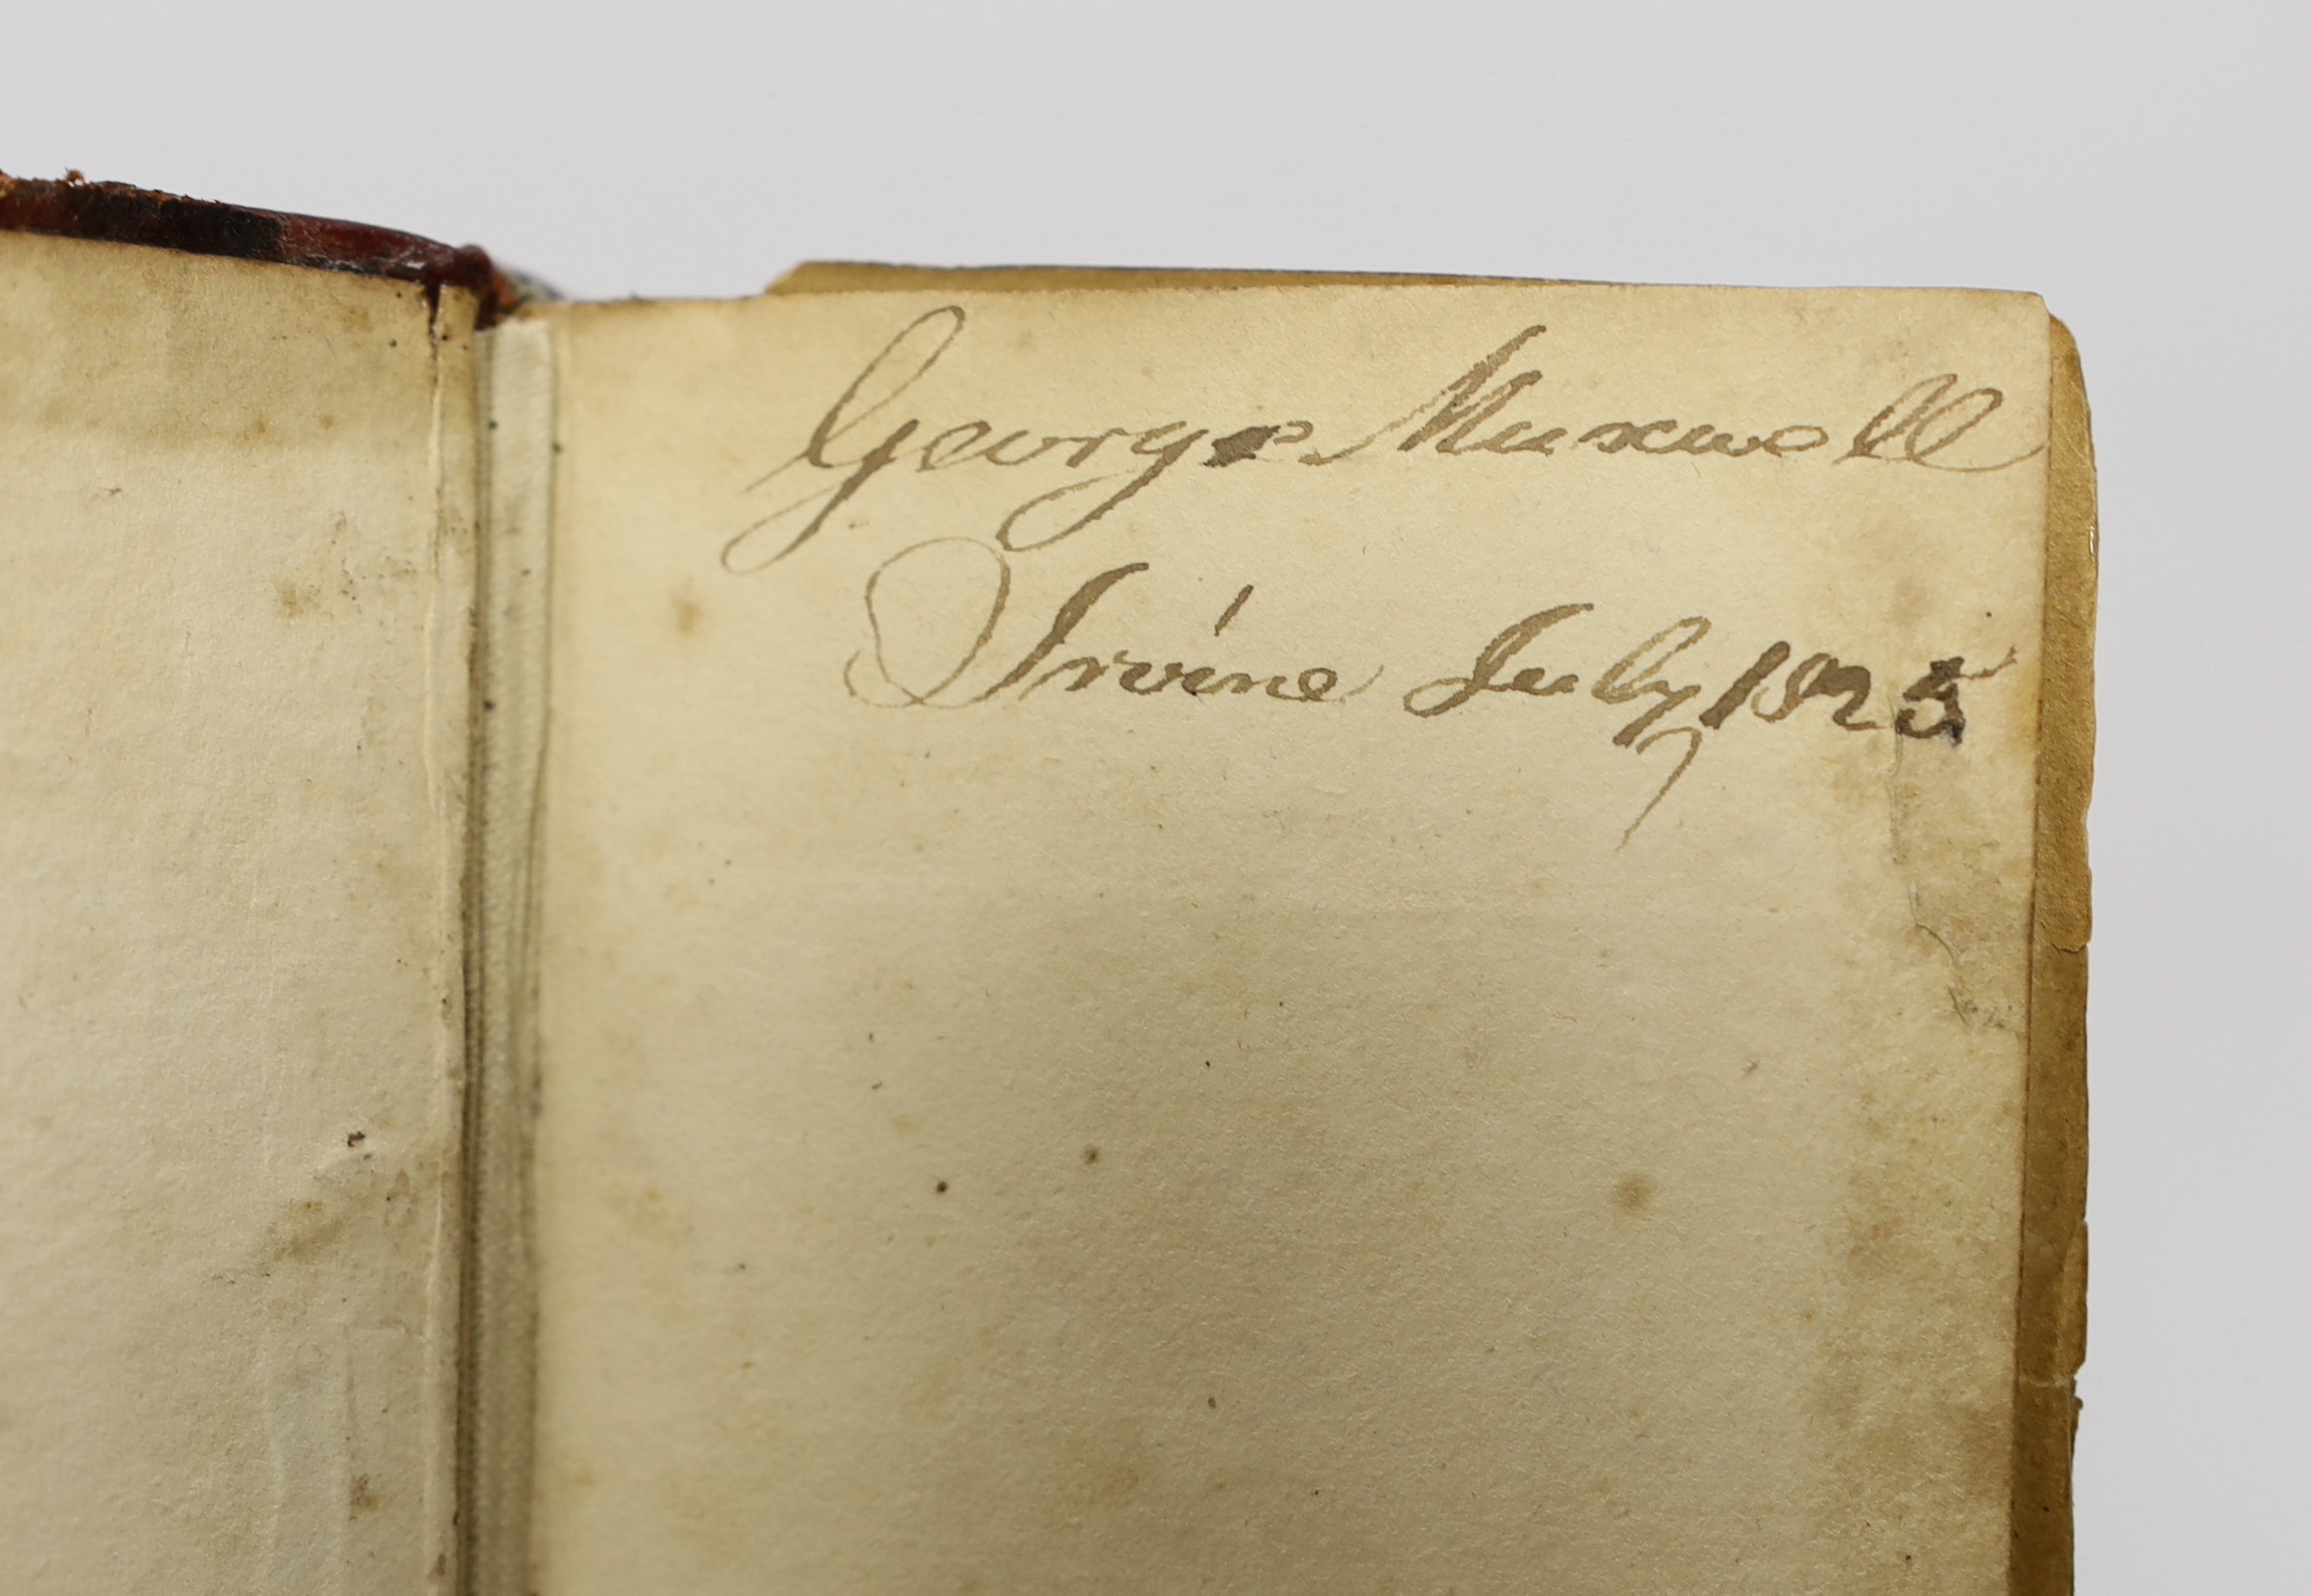 George Maxwell
Irvine July 1825